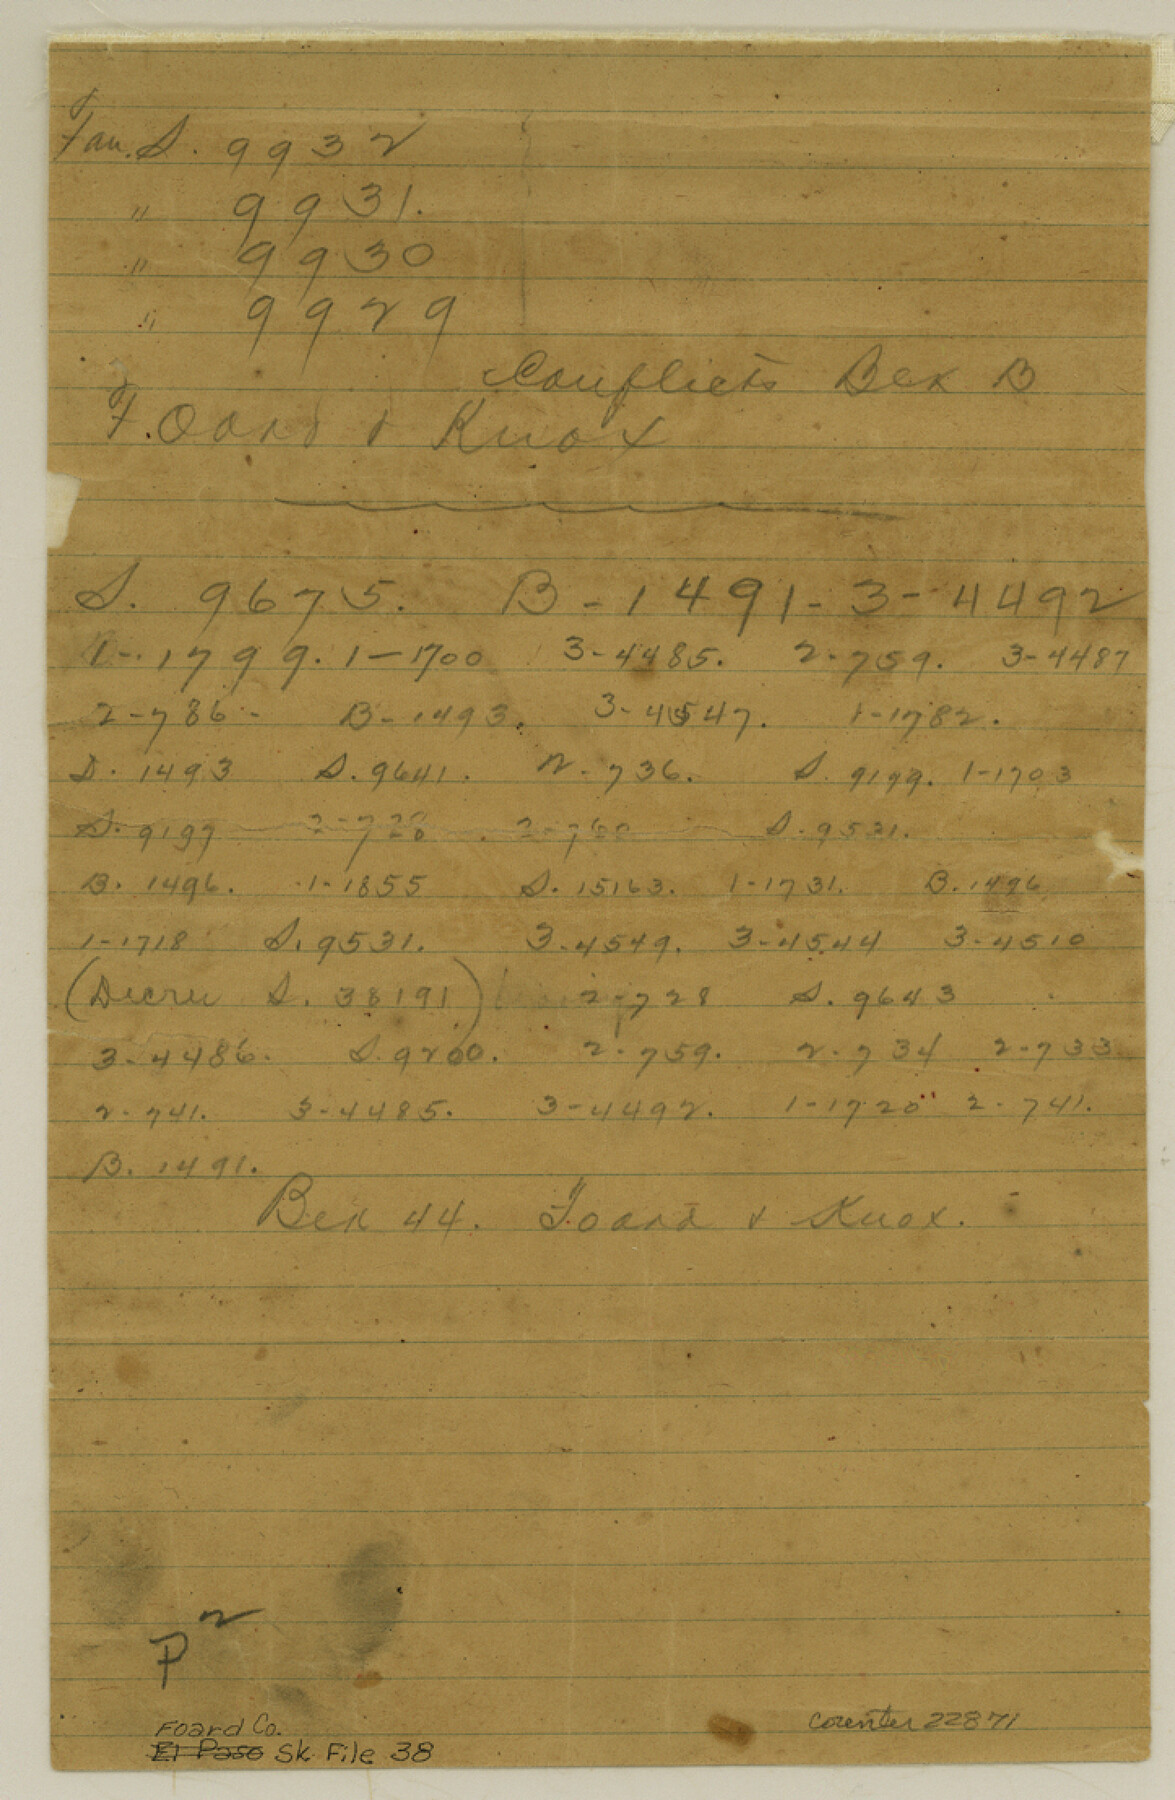 Fan. S. 9932
" 9931.
" 9930
" 9929
Conflicts Bex B
F. Oard & Knox
S. 9675. B-1491-3-4492
1-1799. 1-1700 3-4485. 2-759. 3-4487
2-786- B-1493. 3-4547. 1-1782.
D. 1493 S. 9641. 2-736. S. 9179. 1-1703
S. 9197 2-728 2-760 S. 9531.
B. 1496. 1-1855 S. 15163. 1-1731. B. 1496
1-1718 S. 9531. 3-4549. 3-4544 3-4510
(Decree S. 38191) 2-728 S. 9643
3-4486. S. 9200. 2-759. 2-734 2-733
2-741. 3-4485. 3-4492. 1-1720 2-741.
B. 1491.
Bex 44. Foard & Knox.
P 2
Foard Co.
El Paso Sk. File 38
counter 22871